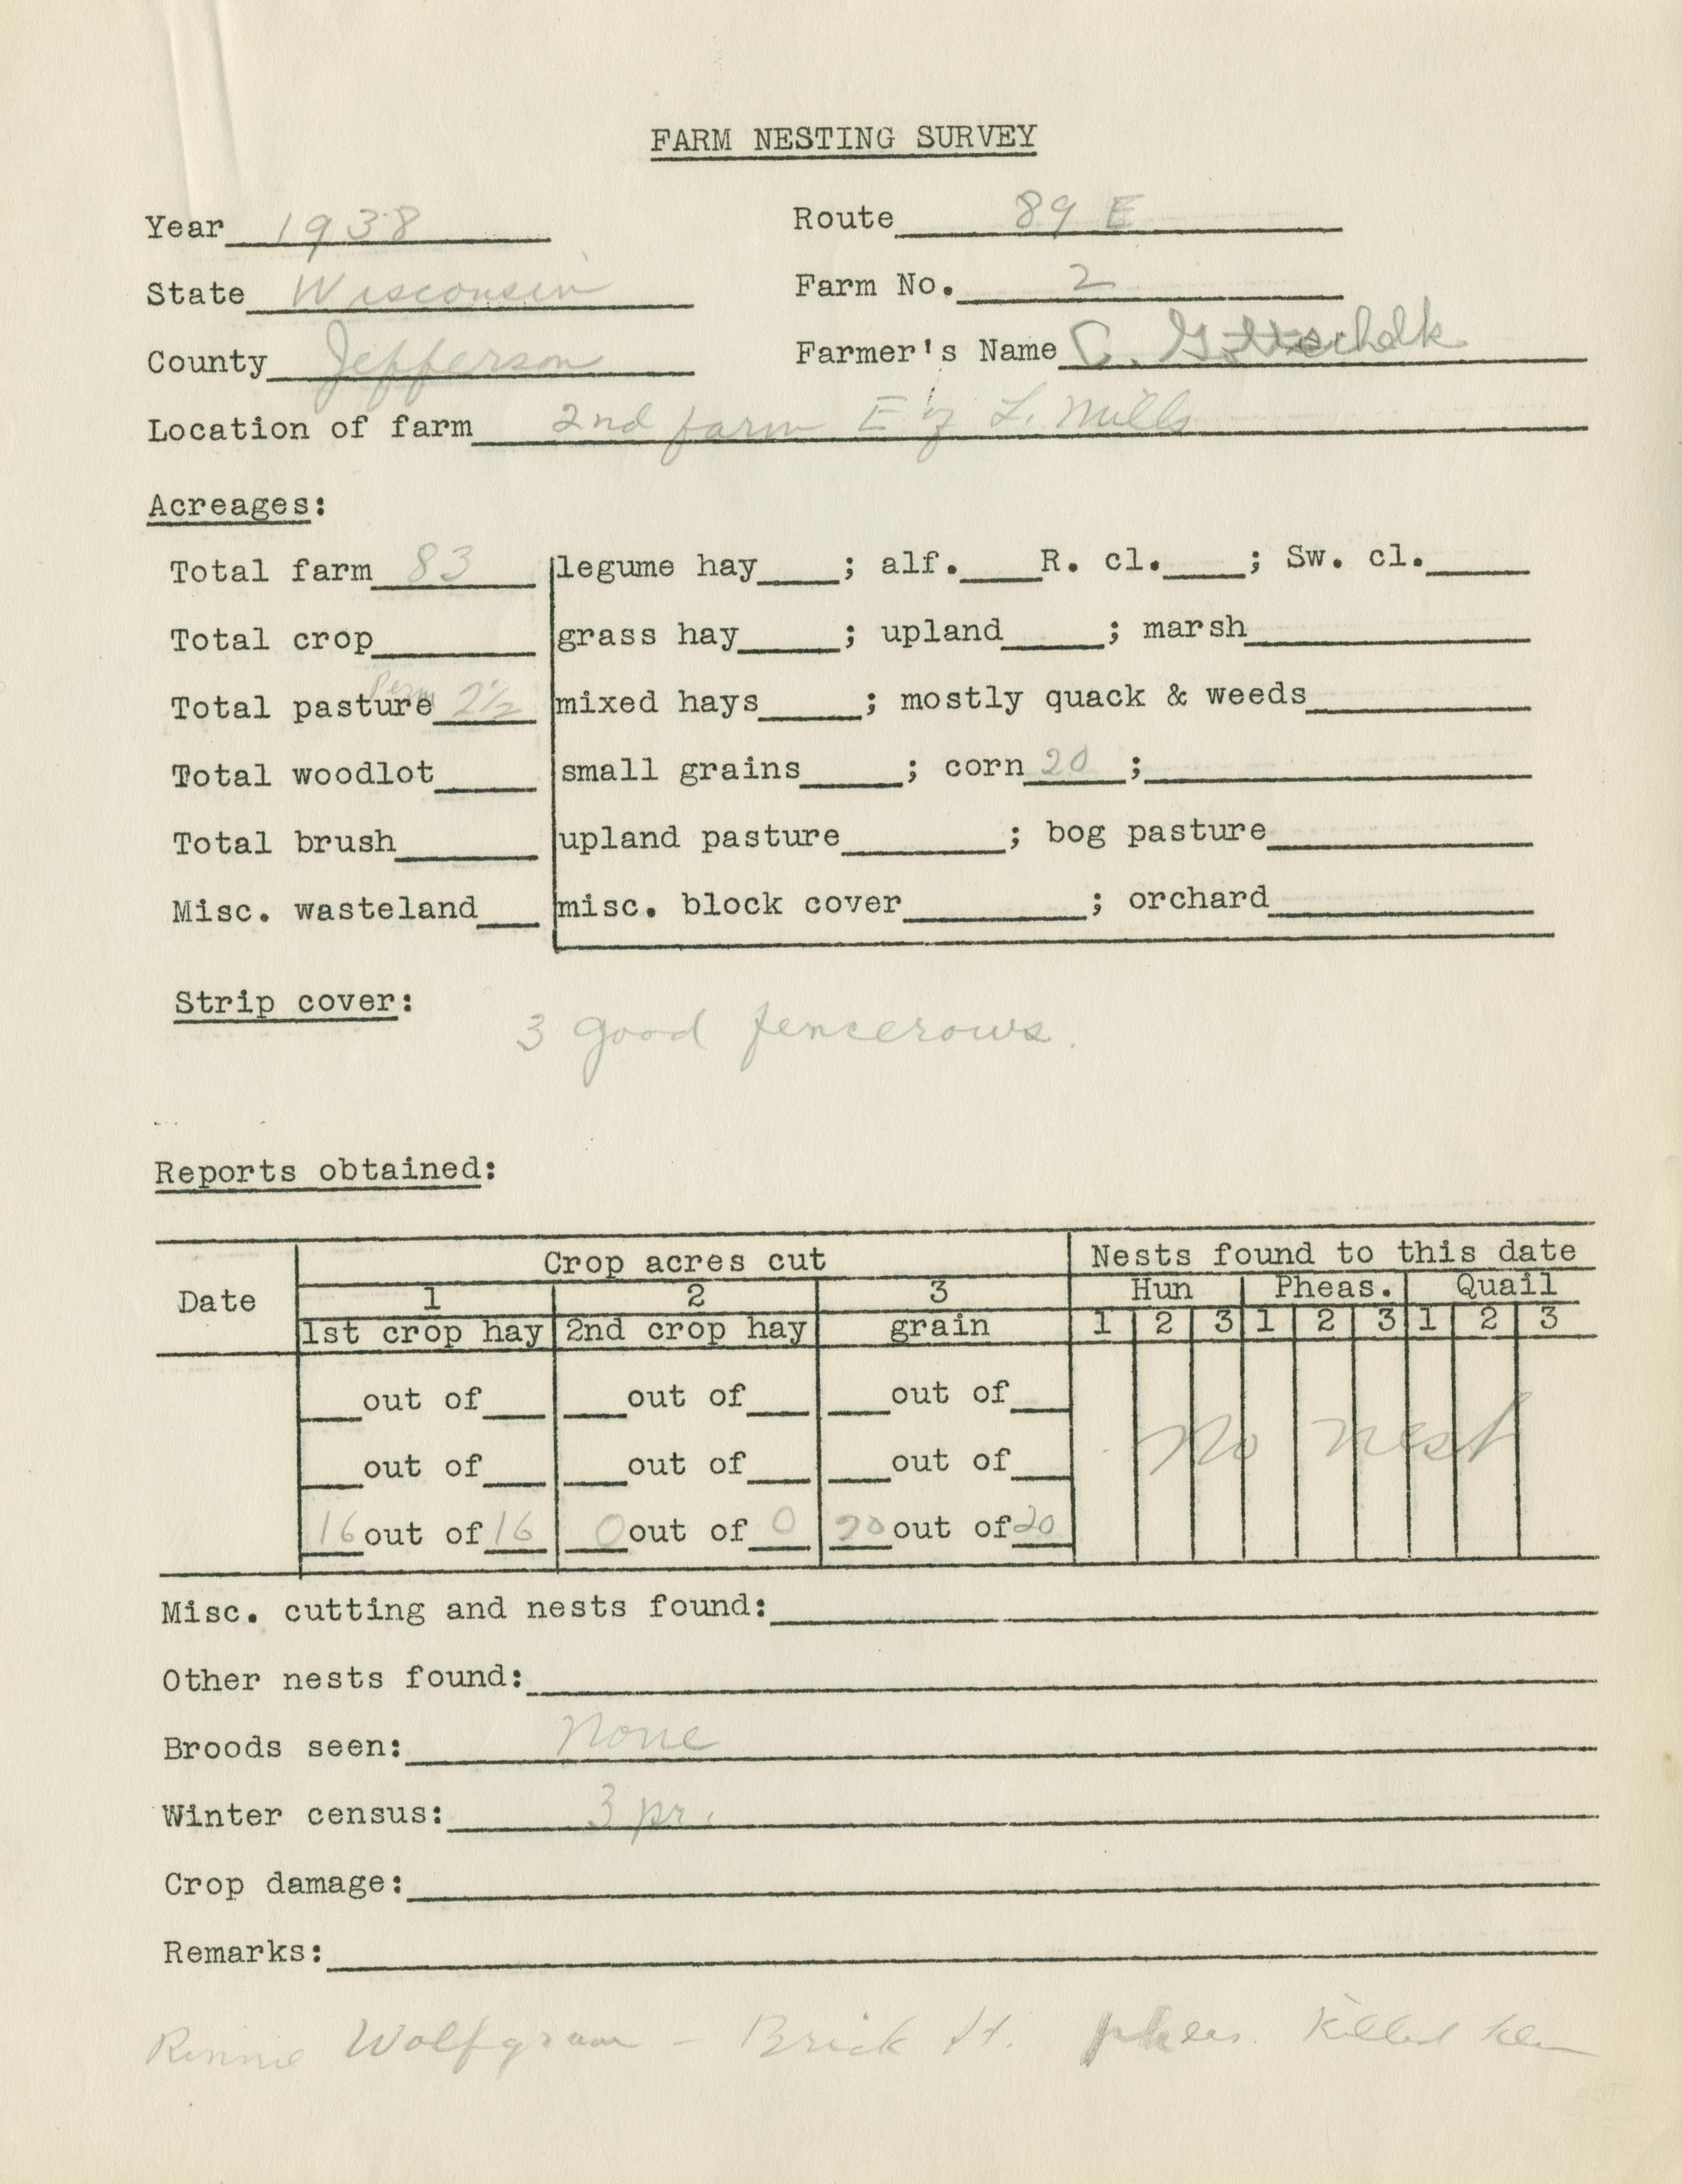 FARM NESTING SURVEY
Year 1938 Route 89 E
State Wisconsin Farm No. 2
County Jefferson Farmer's Name C. Gottschalk
Location of farm 2nd farm E of L. Mills
Acreages:
Total farm 83 legume hay ; alf. R. cl. ; Sw. cl.
Total crop grass hay ; upland ; marsh
Perm
Total pasture 2½ mixed hays ; mostly quack & weeds
Total woodlot small grains ; corn 20 ;
Total brush upland pasture ; bog pasture
Misc. wasteland misc. block cover ; orchard
Strip cover:
3 good fencerows.
Reports obtained:
Crop acres cut Nests found to this date
Date 1 2 3 Hun Pheas. Quail
1st crop hay 2nd crop hay grain 1 2 3 1 2 3 1 2 3
out of out of out of
out of out of out of No nest
16 out of 16 0 out of 0 20 out of 20
Misc. cutting and nests found:
Other nests found:
Broods seen: None
Winter census: 3 pr.
Crop damage:
Remarks:
Wolfgram - Brick St. pheas. killed hen